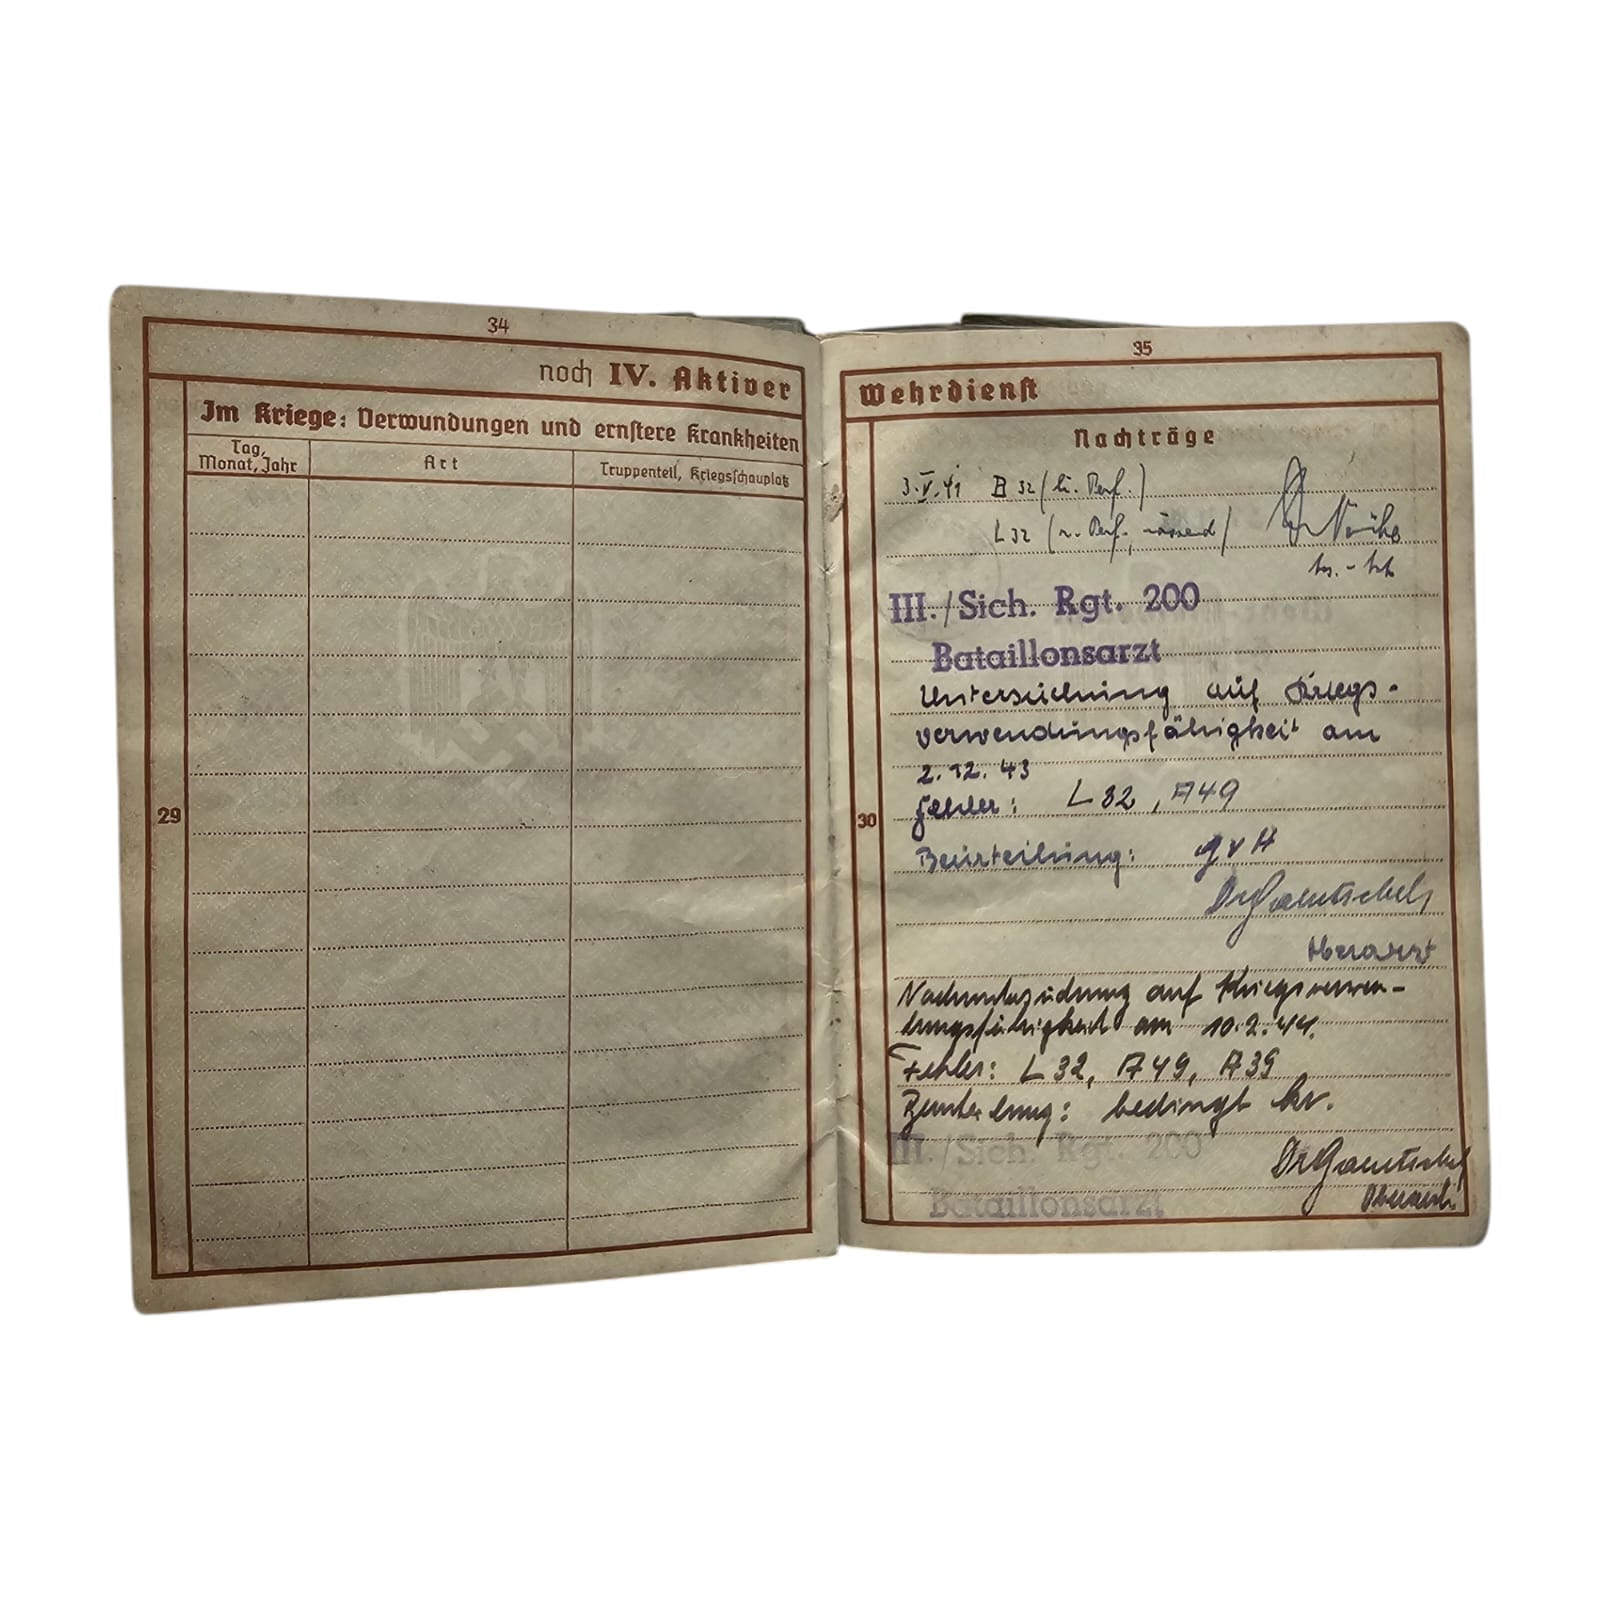 34
noch IV. Aktiver
Im Kriege: Verwundungen und ernstere Krankheiten
Tag, Monat, Jahr
Art
Truppenteil, Kriegsschauplatz
29
35
Wehrdienst
Nachträge
30
3.V.41 B 32 (li. Perf.)
L 32 (r. Perf., nässend) Dr
III./Sich. Rgt. 200
Bataillonsarzt
Untersuchung auf Kriegs-
verwendungsfähigkeit am
2.12.43
Fehler: L 32, A 49
Beurteilung: gvH
Oberarzt
Nachuntersuchung auf Kriegsverwen-
dungsfähigkeit am 10.2.44.
Fehler: L 32, A 49, A 39
Beurteilung: bedingt kv.
III./Sich. Rgt. 200
Bataillonsarzt
Oberarzt